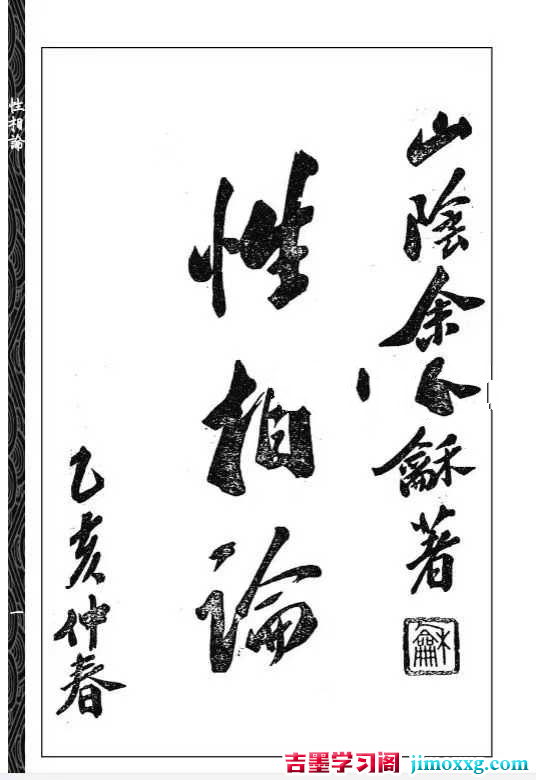 山陰余龢著
性相論
乙亥仲春
性相論
一
吉墨学习阁 jimoxxg.com